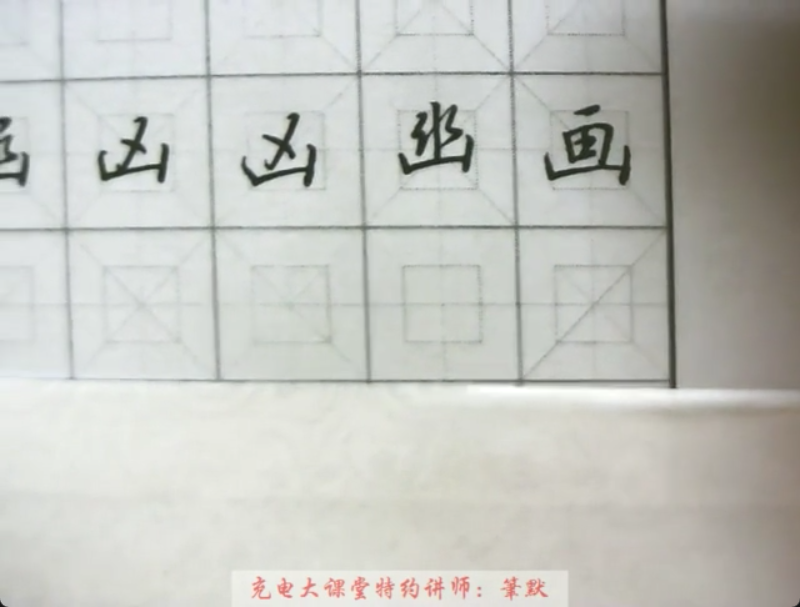 凶 凶 幽 画
充电大课堂特约讲师：筆默